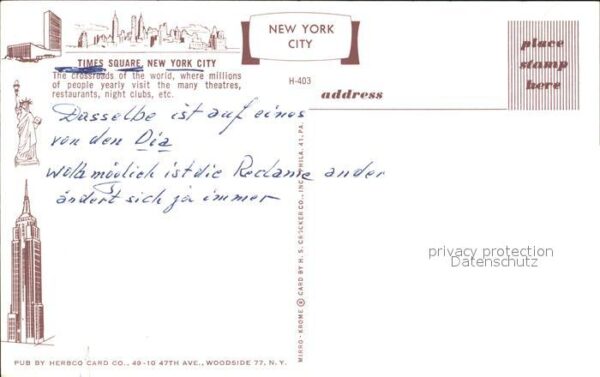 NEW YORK
CITY
TIMES SQUARE, NEW YORK CITY
The crossroads of the world, where millions
of people yearly visit the many theatres,
restaurants, night clubs, etc.
H-403
place
stamp
here
address
Dasselbe ist auf eines
von den Dia
möglich ist die Reclame ander
ändert sich ja immer
MIRRO-KROME ® CARD BY H. S. CROCKER CO., INC., PHILA. 41, PA.
privacy protection
Datenschutz
PUB BY HERBCO CARD CO., 49-10 47TH AVE., WOODSIDE 77, N.Y.